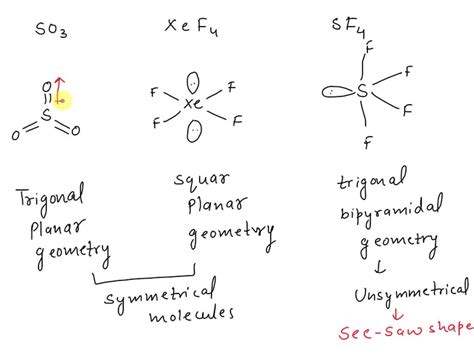 SO3
XeF4
SF4
O
S
O
O
F
F
Xe
F
F
F
F
S
F
F
Trigonal
Planar
geometry
squar
planar
geometry
trigonal
bipyramidal
geometry
symmetrical
molecules
Unsymmetrical
See-saw shape